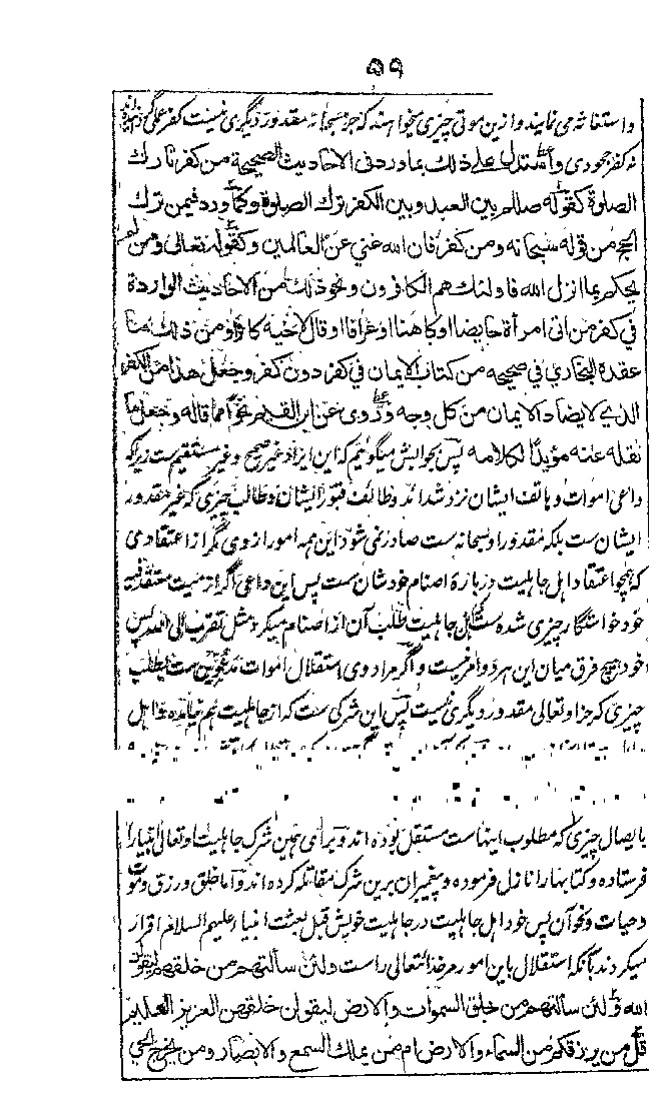 ۵۹
و استغاثه می نمایند و ازین موتی چیزی میخواهند که جز سبحانه مقدور دیگری نیست کفر عملی
نه کفر جحودی و استدل علی ذلک بما ورد فی الاحادیث الصحیحة من کفر تارک
الصلوة کقوله صللم بین العبد وبین الکفر ترک الصلوة وکما ورد فیمن ترک
الحج من قوله سبحانه ومن کفر فان الله غنی عن العالمین وکقوله تعالی ومن لم
یحکم بما انزل الله فاولئک هم الکافرون ونحو ذلک من الاحادیث الواردة
فی کفر من اتی امرأة حایضا او کاهنا او عرافا او قال لاخیه کافر او من ذلک
عقده البخاری فی صحیحه من کتاب الایمان فی کفر دون کفر وجعل هذا من الکفر
الذی لا یضاد الایمان من کل وجه وروی عن ابن القیم نحوا مما قاله وجعل ما
نقله عنه مؤیدا لکلامه پس بجوابش میگوئیم که این ایراد غیر صحیح و غیر مستقیم ست زیراکه
داعی اموات و هاتف ایشان نزد شدائد و طائف قبور ایشان و طالب چیزی که غیر مقدور
ایشان ست بلکه مقدور او سبحانه ست صادر نمی شود این همه امور از وی مگر از اعتقادی
که همچو اعتقاد اهل جاهلیت درباره اصنام خودشان ست پس این داعی اگر از میت معتقد فیه
خود خواستگار چیزی شده ست که اهل جاهلیت طلب آن از اصنام میکرد مثل تقرب الی الله پس
خود هیچ فرق میان این هر دو امر نیست و اگر مراد وی استقلال اموات مدعوین ست بطلب
چیزی که جز او تعالی مقدور دیگری نیست پس این شرکی ست که از جاهلیت هم نیامده اهل
یا یصال چیزی که مطلوب اینهاست مستقل بوده اند و برای همین شرک جاهلیت او تعالی انبیا را
فرستاده و کتابها را نازل فرموده و پیغمبران برین شرک مقاتله کرده اند و اما خلق و رزق و موت
و حیات و نحو آن پس خود اهل جاهلیت در جاهلیت خویش قبل بعثت انبیاء علیهم السلام اقرار
میکردند بآنکه استقلال باین امور مر خدا تعالی راست ولئن سألتهم من خلقهم لیقولن
الله ولئن سألتهم من خلق السموات والارض لیقولن خلقهن العزیز العلیم
قل من یرزقکم من السماء والارض ام من یملک السمع والابصار ومن یخرج الحی